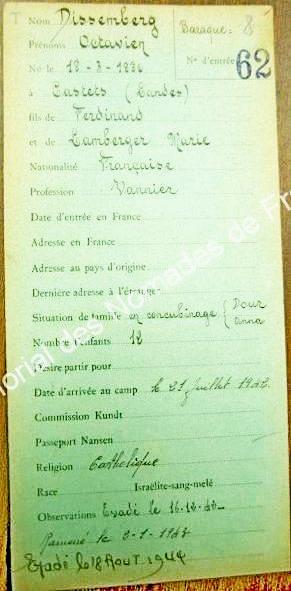 T Nom Dissemberg
Baraque: 8
Prénoms Octavien
N° d'entrée 62
Né le 18-3-1896
à Castets (Landes)
fils de Ferdinand
et de Lamberger Marie
Nationalité Française
Profession Vannier
Date d'entrée en France
Adresse en France
Adresse au pays d'origine
Dernière adresse à l'étranger
Situation de famille en concubinage { Dour Anna
Nombre d'enfants 12
Désire partir pour
Date d'arrivée au camp le 21 Juillet 1942
Commission Kundt
Passeport Nansen
Religion Catholique
Race Israélite-sang-mêlé
Observations Evadé le 16-12-42
Ramené le 3-1-1943
Evadé le 18 Aout 1944
morial des Nomades de Fr